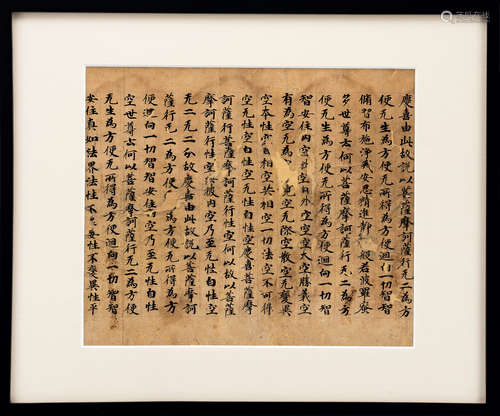 慶喜由此故說以菩薩摩訶薩行无二為方
便无生為方便无所得為方便迴向一切智智
脩習布施淨戒安忍精進靜般若波羅蜜
多世尊云何以菩薩摩訶薩行无二為方
便无生為方便无所得為方便迴向一切智
智安住內空外空內外空空空大空勝義空
有為空无為空竟空无際空散空无變異
空本性空自相空共相空一切法空不可得
空无性空自性空无性自性空慶喜菩薩摩
訶薩行菩薩摩訶薩行性空何以故以菩薩
摩訶薩行性空與彼內空乃至无性自性空
无二无二分故慶喜由此故說以菩薩摩訶
薩行无二為方便无生為方便无所得為方
便迴向一切智智安住內空乃至无性自性
空世尊云何以菩薩摩訶薩行无二為方便
无生為方便无所得為方便迴向一切智智
安住真如法界法性不妄性不變異性平